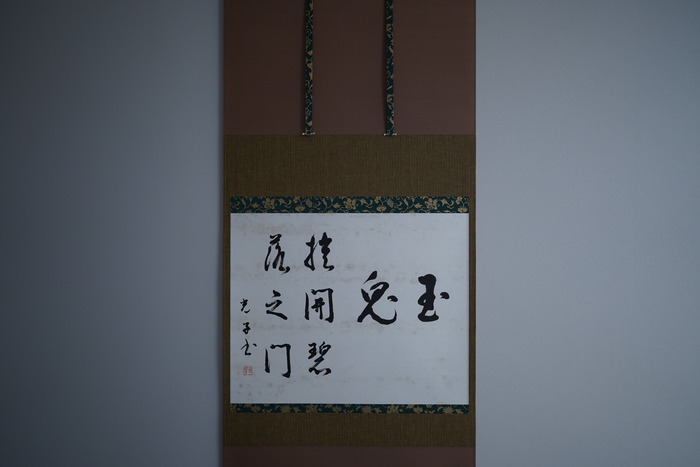 玉兎
挨開碧
落之門
光子書